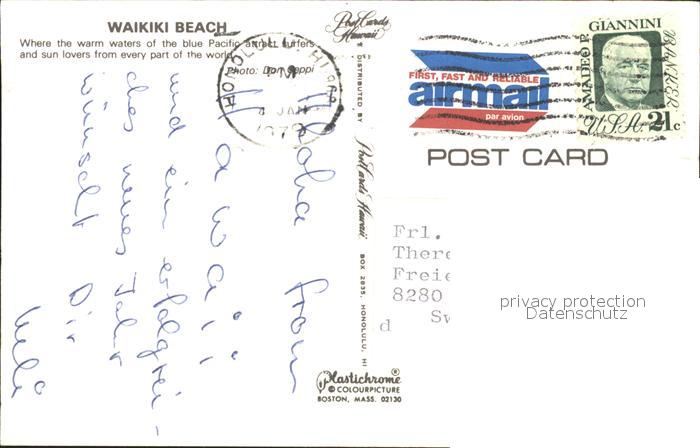 WAIKIKI BEACH
Where the warm waters of the blue Pacific attract surfers
and sun lovers from every part of the world.
Photo: Don
HONOLULU, HI
PM
JAN
PostCards
Hawaii
DISTRIBUTED BY
PostCards Hawaii
BOX 2835, HONOLULU, HI
Plastichrome®
© COLOURPICTURE
BOSTON, MASS. 02130
FIRST, FAST AND RELIABLE
airmail
par avion
AMADEO P.
GIANNINI
BANKER
U.S.A. 21c
POST CARD
Aloha from
Hawaii
und ein erfolgrei-
ches neues Jahr
wünscht Dir
Frl.
There
Freie
8280
Sw
d
privacy protection
Datenschutz